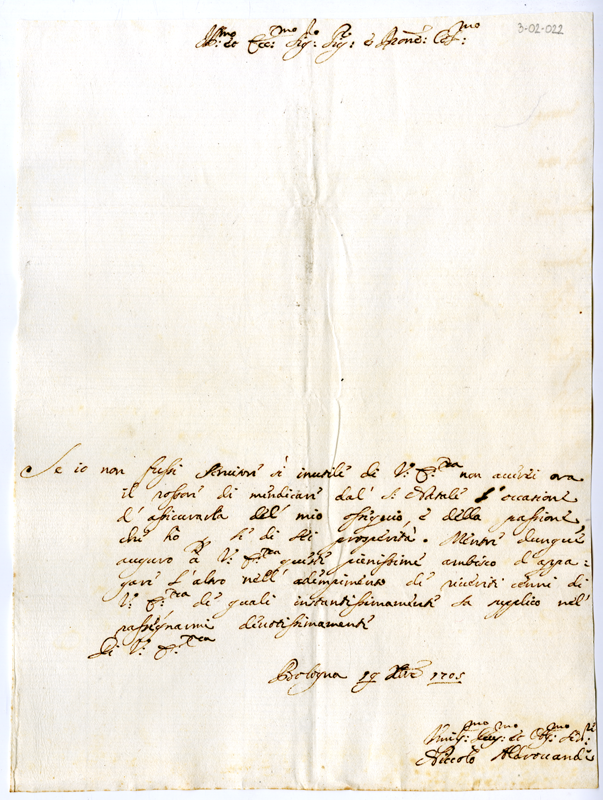 3-02-022
Ill.mo et Ecc.mo Sig.r Sig.r e Prone: Col.mo
Se io non fussi Servitore sì inutile di V: E.za non averei ora
il rossore di mendicare dal S. Natale l'occasione
d'assicurarla del mio ossequio e della passione,
che hò p le di lei prosperità. Mentre dunque
auguro à V: E.za queste pienissime ambisco d'appa=
gare l'altro nell'adempimento de riveriti cenni di
V: E.za de quali instantissimamente la supplico nel
rassegnarmi devotissimamente
Di V: E.za
Bologna 19 Xbre 1705
Umil.mo Dev.mo et Obl.mo Ser.re
Niccolò Aldrovandi